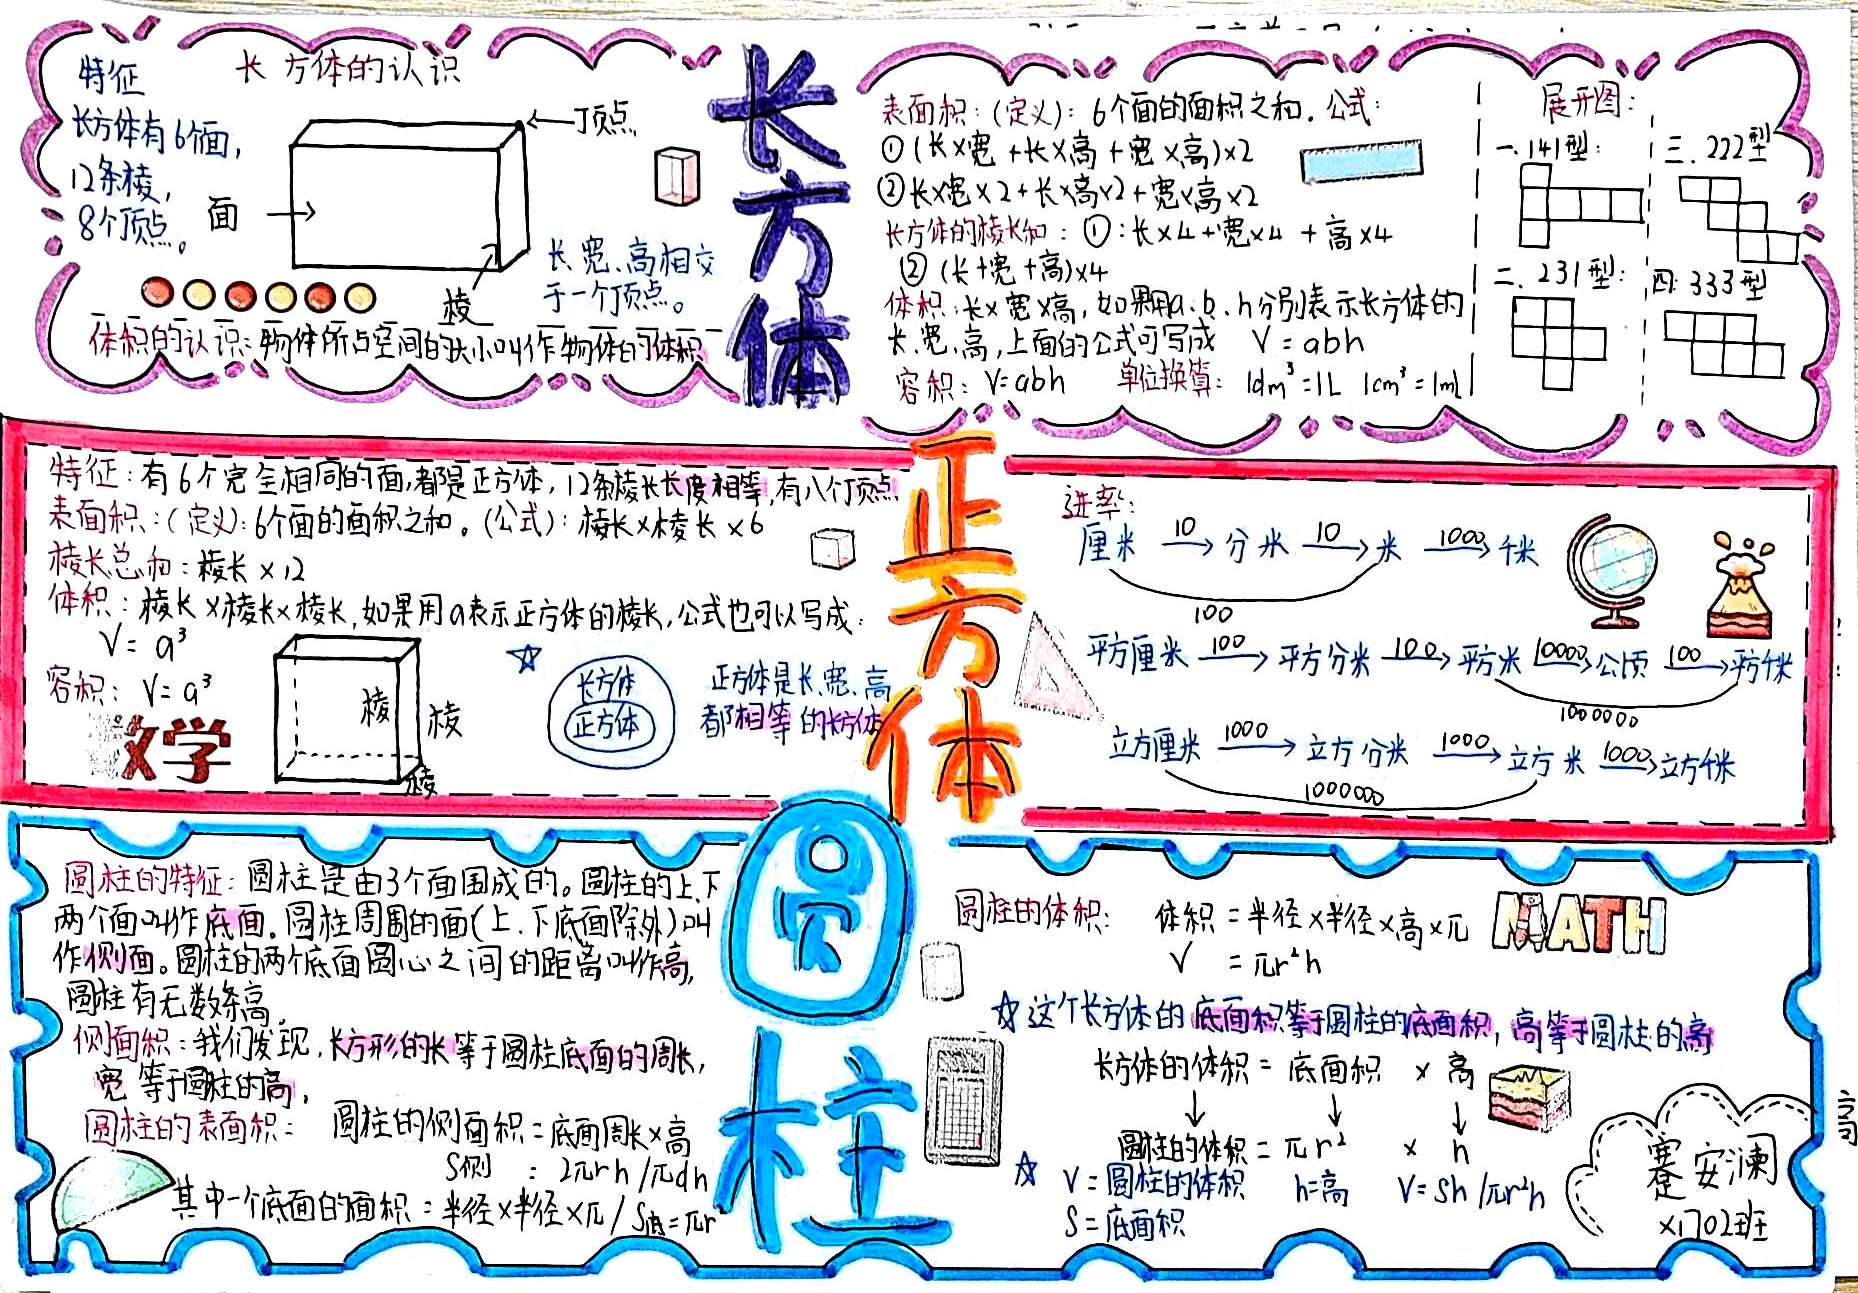 长方体的认识
特征
长方体有6个面,
12条棱,
8个顶点。
面
顶点
棱
长、宽、高相交
于一个顶点。
体积的认识:物体所占空间的大小叫作物体的体积
长方体
表面积:(定义):6个面的面积之和.公式:
①(长×宽+长×高+宽×高)×2
②长×宽×2+长×高×2+宽×高×2
长方体的棱长和:①:长×4+宽×4+高×4
②(长+宽+高)×4
体积:长×宽×高,如果用a、b、h分别表示长方体的
长、宽、高,上面的公式可写成 V=abh
容积:V=abh 单位换算:1dm³=1L 1cm³=1ml
展开图:
一.141型:
三.222型
二.231型:
四.333型
正方体
特征:有6个完全相同的面,都是正方体,12条棱长长度相等,有八个顶点
表面积:(定义):6个面的面积之和。(公式):棱长×棱长×6
棱长总和:棱长×12
体积:棱长×棱长×棱长,如果用a表示正方体的棱长,公式也可以写成:
V=a³
容积:V=a³
数学
棱
棱
棱
长方体
正方体
正方体是长、宽、高
都相等的长方体
进率:
厘米 10 分米 10 米 1000 千米
100
平方厘米 100 平方分米 100 平方米 10000 公顷 100 平方千米
1000000
立方厘米 1000 立方分米 1000 立方米 1000 立方千米
1000000
圆柱
圆柱的特征:圆柱是由3个面围成的。圆柱的上、下
两个面叫作底面。圆柱周围的面(上、下底面除外)叫
作侧面。圆柱的两个底面圆心之间的距离叫作高,
圆柱有无数条高。
侧面积:我们发现,长方形的长等于圆柱底面的周长,
宽等于圆柱的高,
圆柱的表面积: 圆柱的侧面积=底面周长×高
S侧 : 2πrh/πdh
其中一个底面的面积=半径×半径×π/S底=πr
圆柱的体积: 体积=半径×半径×高×π
V =πr²h
MATH
☆这个长方体的底面积等于圆柱的底面积,高等于圆柱的高
长方体的体积=底面积×高
圆柱的体积=πr² × h
☆ V=圆柱的体积 h=高 V=Sh/πr²h
S=底面积
蹇安涷
x1702班
高